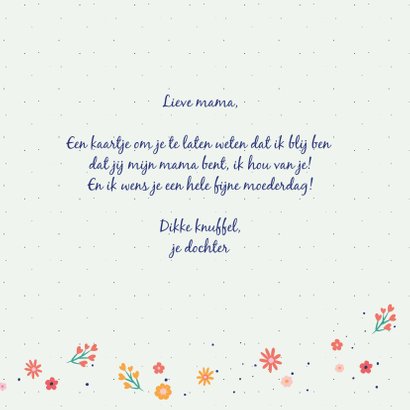 Lieve mama,
Een kaartje om je te laten weten dat ik blij ben
dat jij mijn mama bent, ik hou van je!
En ik wens je een hele fijne moederdag!
Dikke knuffel,
je dochter